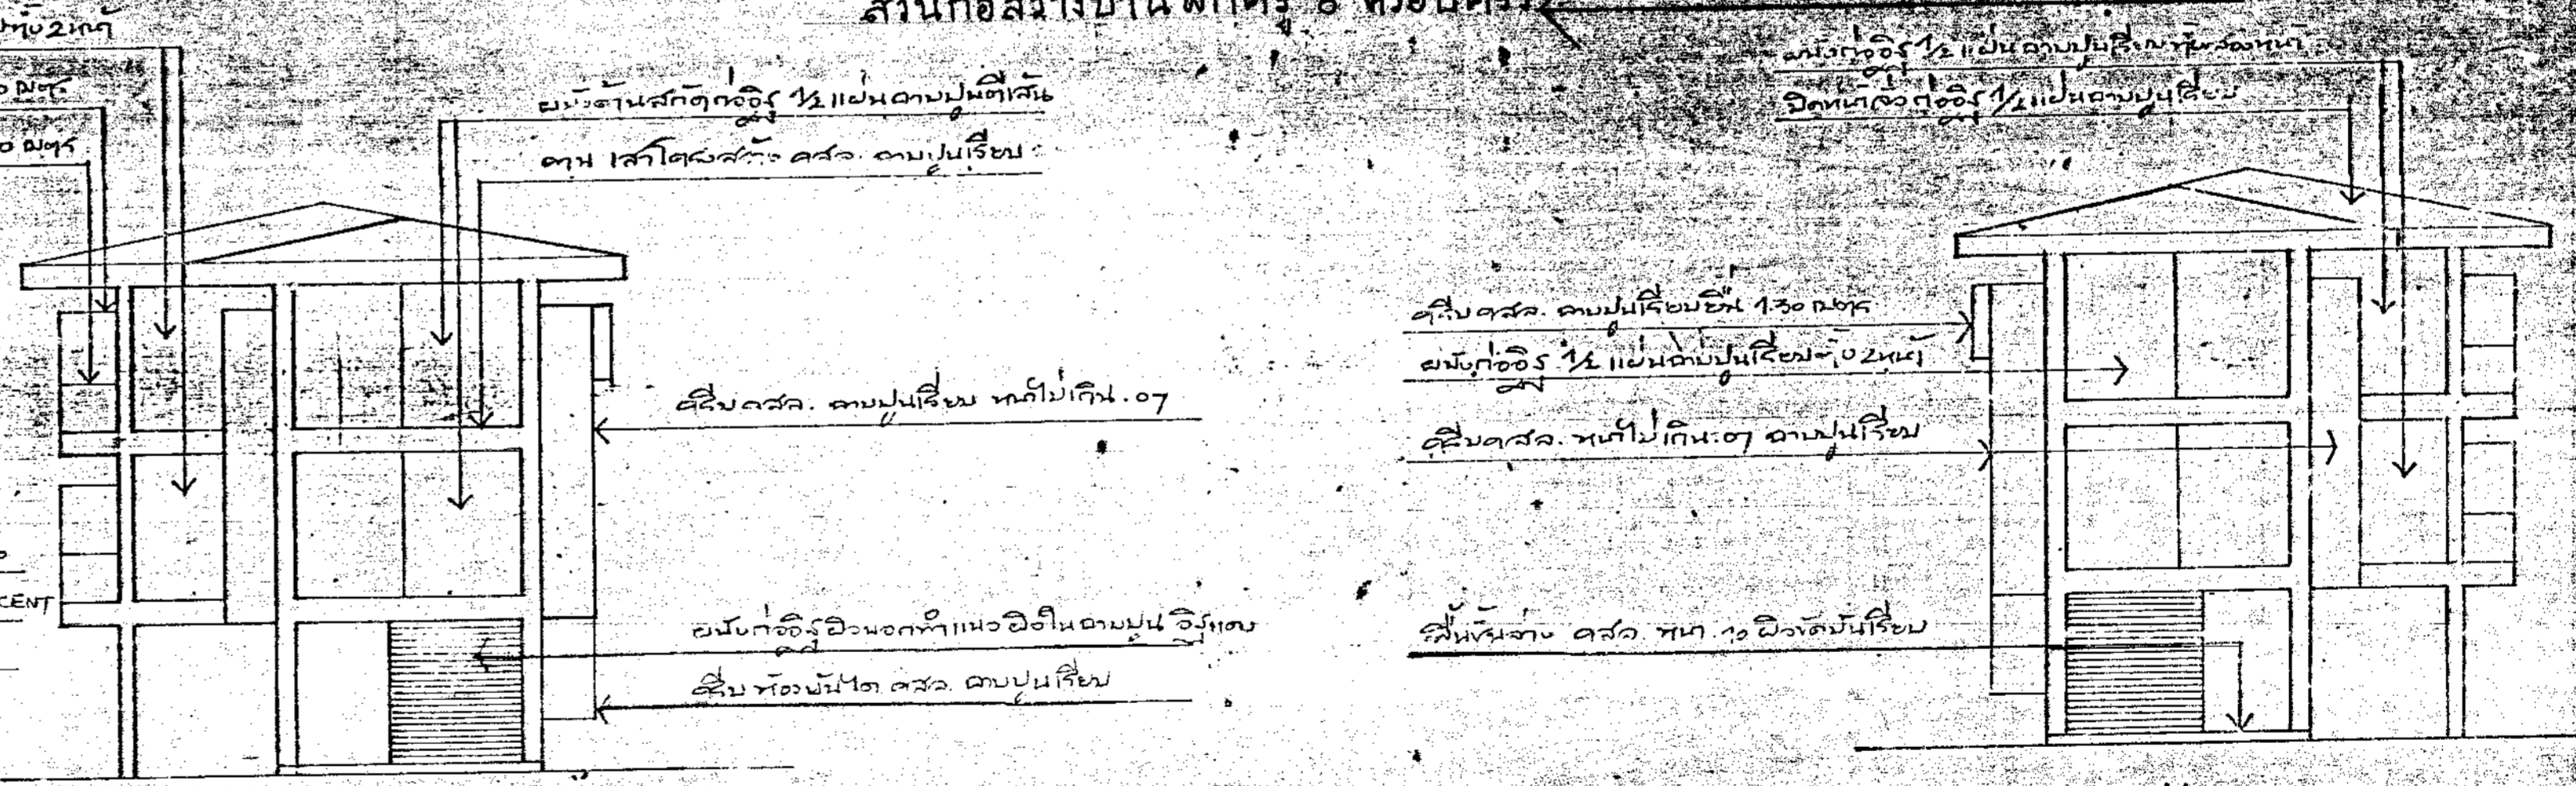 ส่วนก่อสร้างบ้านพักครู 8 ครอบครัว
ทั้ง 2 หน้า
เมตร
เมตร
ผนังด้านสกัดก่ออิฐ 1/2 แผ่นฉาบปูนตีเส้น
คาน เสาโครงสร้าง คสล. ฉาบปูนเรียบ
ครีบ คสล. ฉาบปูนเรียบ หนาไม่เกิน .07
ผนังก่ออิฐผิวนอกทำแนว ผิวในฉาบปูน
ครีบ ห้องบันได คสล. ฉาบปูนเรียบ
CENT
ผนังก่ออิฐ 1/2 แผ่นฉาบปูนเรียบทั้งสองหน้า
ปิดหน้าจั่วก่ออิฐ 1/2 แผ่นฉาบปูนเรียบ
ครีบ คสล. ฉาบปูนเรียบยื่น 1.30 เมตร
ผนังก่ออิฐ 1/2 แผ่นฉาบปูนเรียบทั้ง 2 หน้า
ครีบ คสล. หนาไม่เกิน .07 ฉาบปูนเรียบ
พื้นชั้นล่าง คสล. หนา .10 ผิวขัดมันเรียบ